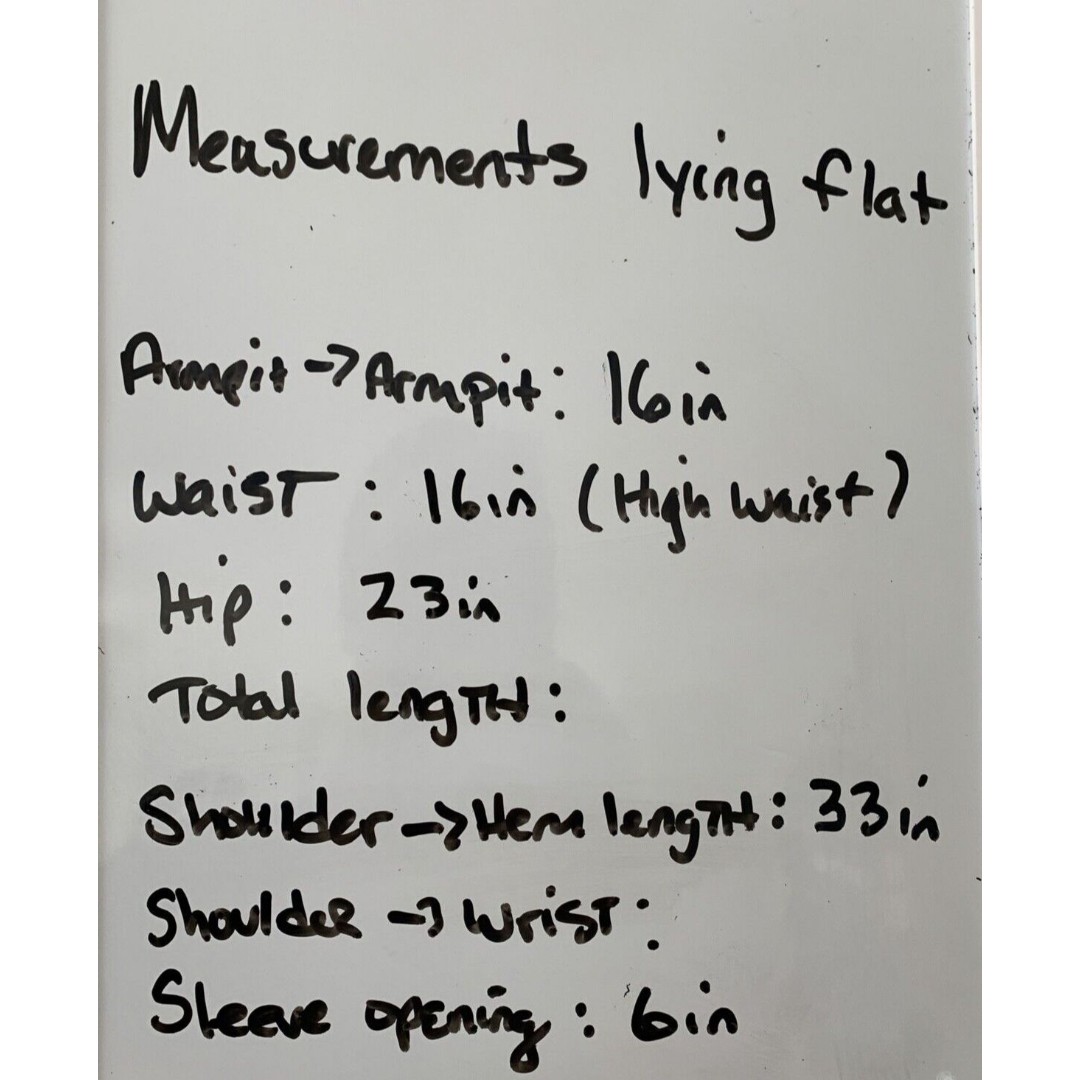 Measurements lying flat
Armpit -> Armpit: 16in
Waist : 16in (High Waist)
Hip: 23in
Total length:
Shoulder -> Hem length: 33in
Shoulder -> Wrist:
Sleeve opening: 6in